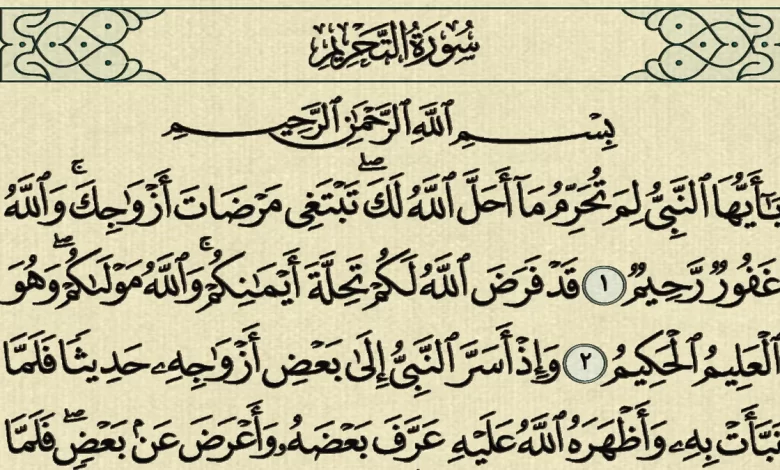 سُورَةُ التَّحْرِيمِ
بِسْمِ ٱللَّهِ ٱلرَّحْمَٰنِ ٱلرَّحِيمِ
يَٰٓأَيُّهَا ٱلنَّبِىُّ لِمَ تُحَرِّمُ مَآ أَحَلَّ ٱللَّهُ لَكَ ۖ تَبْتَغِى مَرْضَاتَ أَزْوَٰجِكَ ۚ وَٱللَّهُ
غَفُورٌ رَّحِيمٌ ١ قَدْ فَرَضَ ٱللَّهُ لَكُمْ تَحِلَّةَ أَيْمَٰنِكُمْ ۚ وَٱللَّهُ مَوْلَىٰكُمْ ۖ وَهُوَ
ٱلْعَلِيمُ ٱلْحَكِيمُ ٢ وَإِذْ أَسَرَّ ٱلنَّبِىُّ إِلَىٰ بَعْضِ أَزْوَٰجِهِۦ حَدِيثًا فَلَمَّا
نَبَّأَتْ بِهِۦ وَأَظْهَرَهُ ٱللَّهُ عَلَيْهِ عَرَّفَ بَعْضَهُۥ وَأَعْرَضَ عَنۢ بَعْضٍ ۖ فَلَمَّا